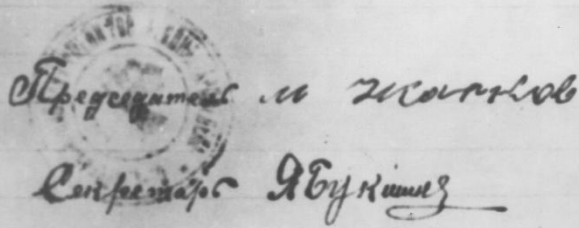 Председатель М Жарков
Секретарь Я Букшин